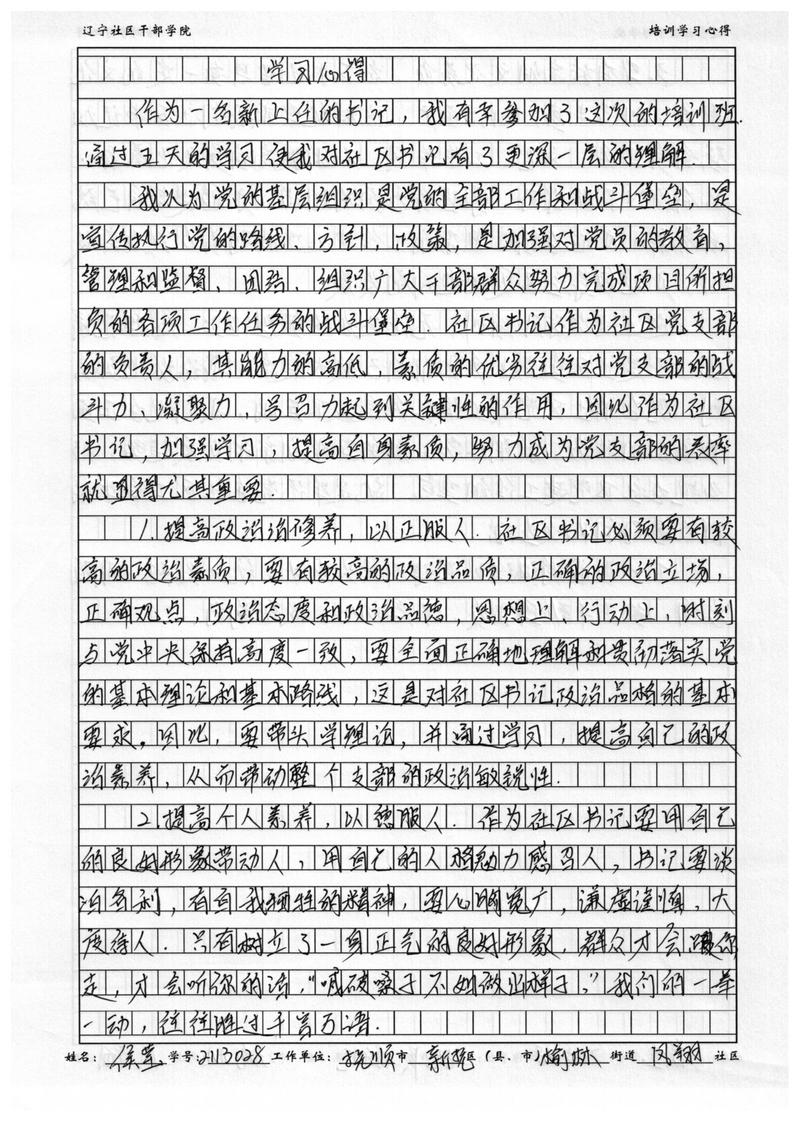 辽宁社区干部学院 培训学习心得
学习心得
作为一名新上任的书记，我有幸参加了这次的培训班.
通过五天的学习使我对社区书记有了更深一层的理解
我认为党的基层组织是党的全部工作和战斗堡垒，是
宣传执行党的路线、方针，政策，是加强对党员的教育，
管理和监督、团结、组织广大干部群众努力完成项目所担
负的各项工作任务的战斗堡垒. 社区书记作为社区党支部
的负责人，其能力的高低、素质的优劣往往对党支部的战
斗力，凝聚力，号召力起到关键性的作用，因此作为社区
书记，加强学习，提高自身素质，努力成为党支部的表率
就显得尤其重要.
1.提高政治治修养，以正服人. 社区书记必须要有较
高的政治素质，要有较高的政治品质，正确的政治立场，
正确观点，政治态度和政治品德，思想上、行动上，时刻
与党中央保持高度一致，要全面正确地理解和贯彻落实党
的基本理论和基本路线，这是对社区书记政治品格的基本
要求，因此，要带头学理论，并通过学习，提高自己的政
治素养，从而带动整个支部的政治敏锐性.
2.提高个人素养，以德服人. 作为社区书记要用自己
的良好形象带动人，用自己的人格魅力感召人，书记要淡
泊名利，有自我牺牲的精神，要心胸宽广，谦虚谨慎，大
度待人. 只有树立了一身正气的良好形象，群众才会跟你
走，才会听你的话，“喊破嗓子不如做出样子，”我们的一举
一动，往往胜过千言万语.
姓名: 侯 学号: 2113028 工作单位: 抚顺 市 新抚 区（县、市）榆林 街道 凤翔 社区